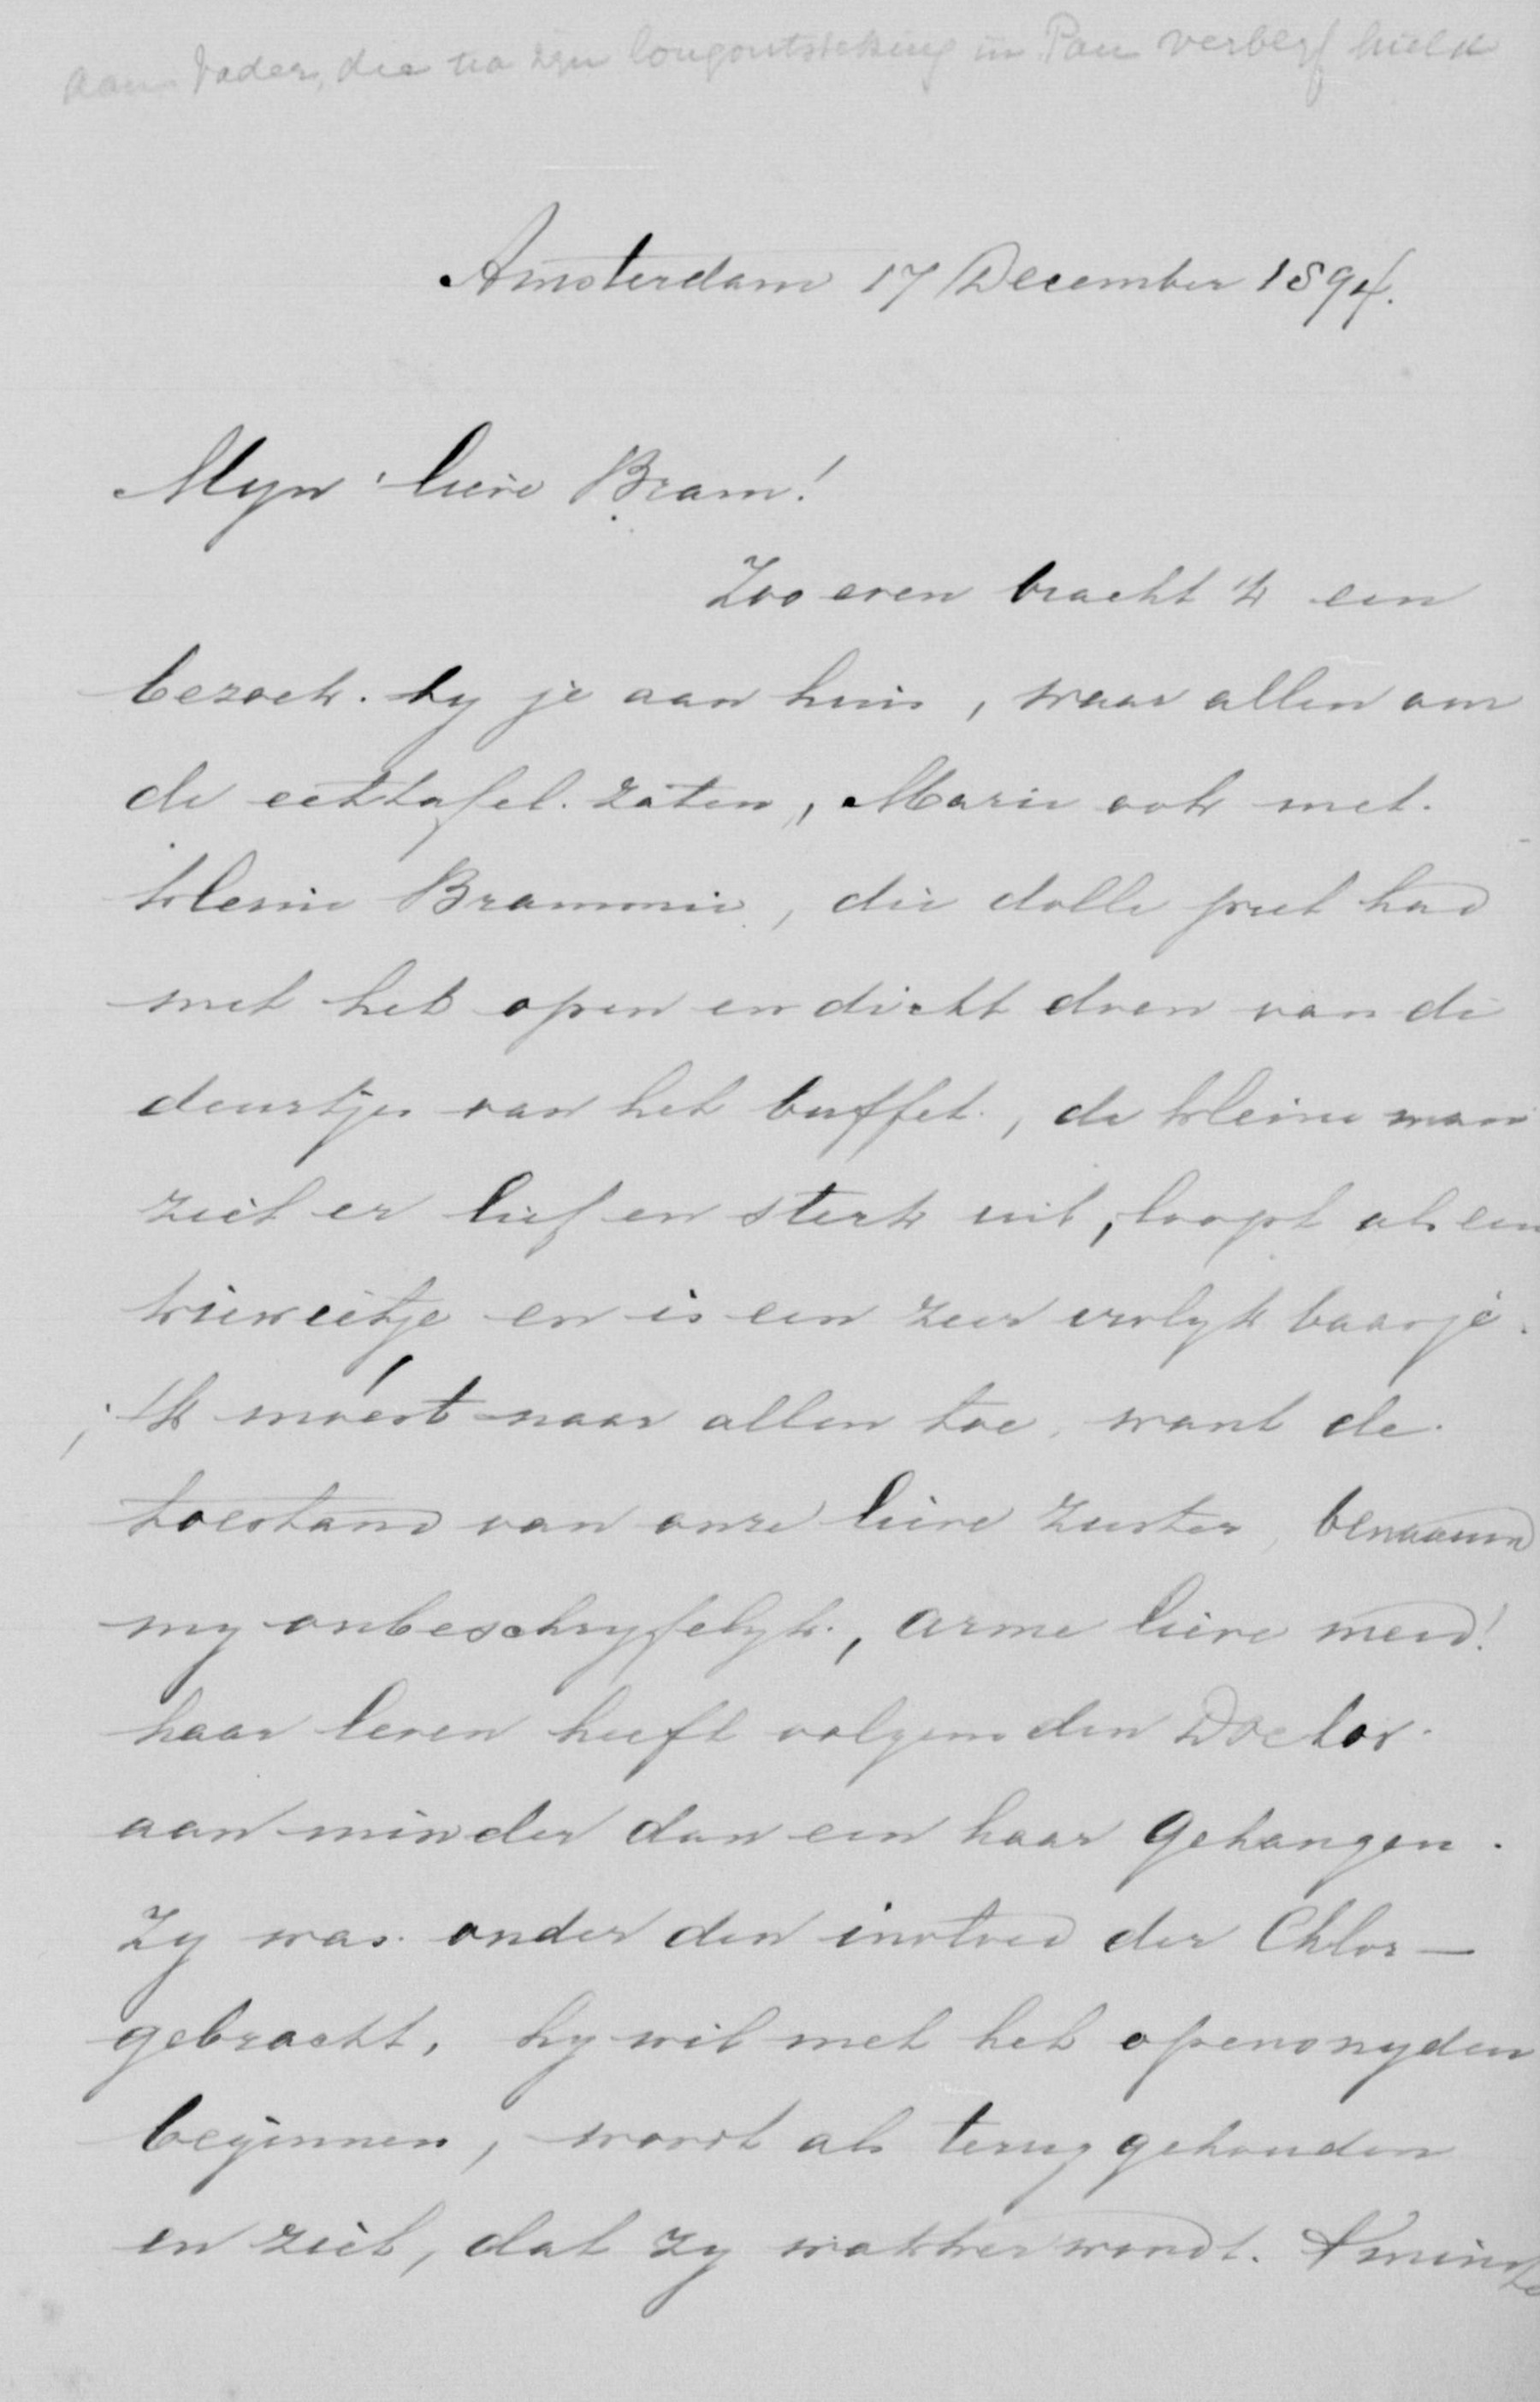 aan Vader, die na zijn longontsteking in Pau verblijf hield
Amsterdam 17 December 1894.
Myn lieve Bram!
Zoo even bracht ik een
bezoek by je aan huis, waar allen om
de eettafel zaten, Marie ook met
kleine Brammie, die dolle pret had
met het open en dicht doen van de
deurtjes van het buffet, de kleine man
ziet er lief en sterk uit, loopt als een
kieweitje en is een zeer vrolyk baasje.
Ik moest naar allen toe, want de
toestand van onze lieve zuster, benaauwd
my onbeschryfelyk, arme lieve meid!
haar leven heeft volgens den Doctor
aan minder dan een haar gehangen.
Zy was onder den invloed der Chlor-
gebracht, hy wil met het opensnyden
beginnen, wordt als terug gehouden
en ziet, dat zy wakker wordt. 't minste